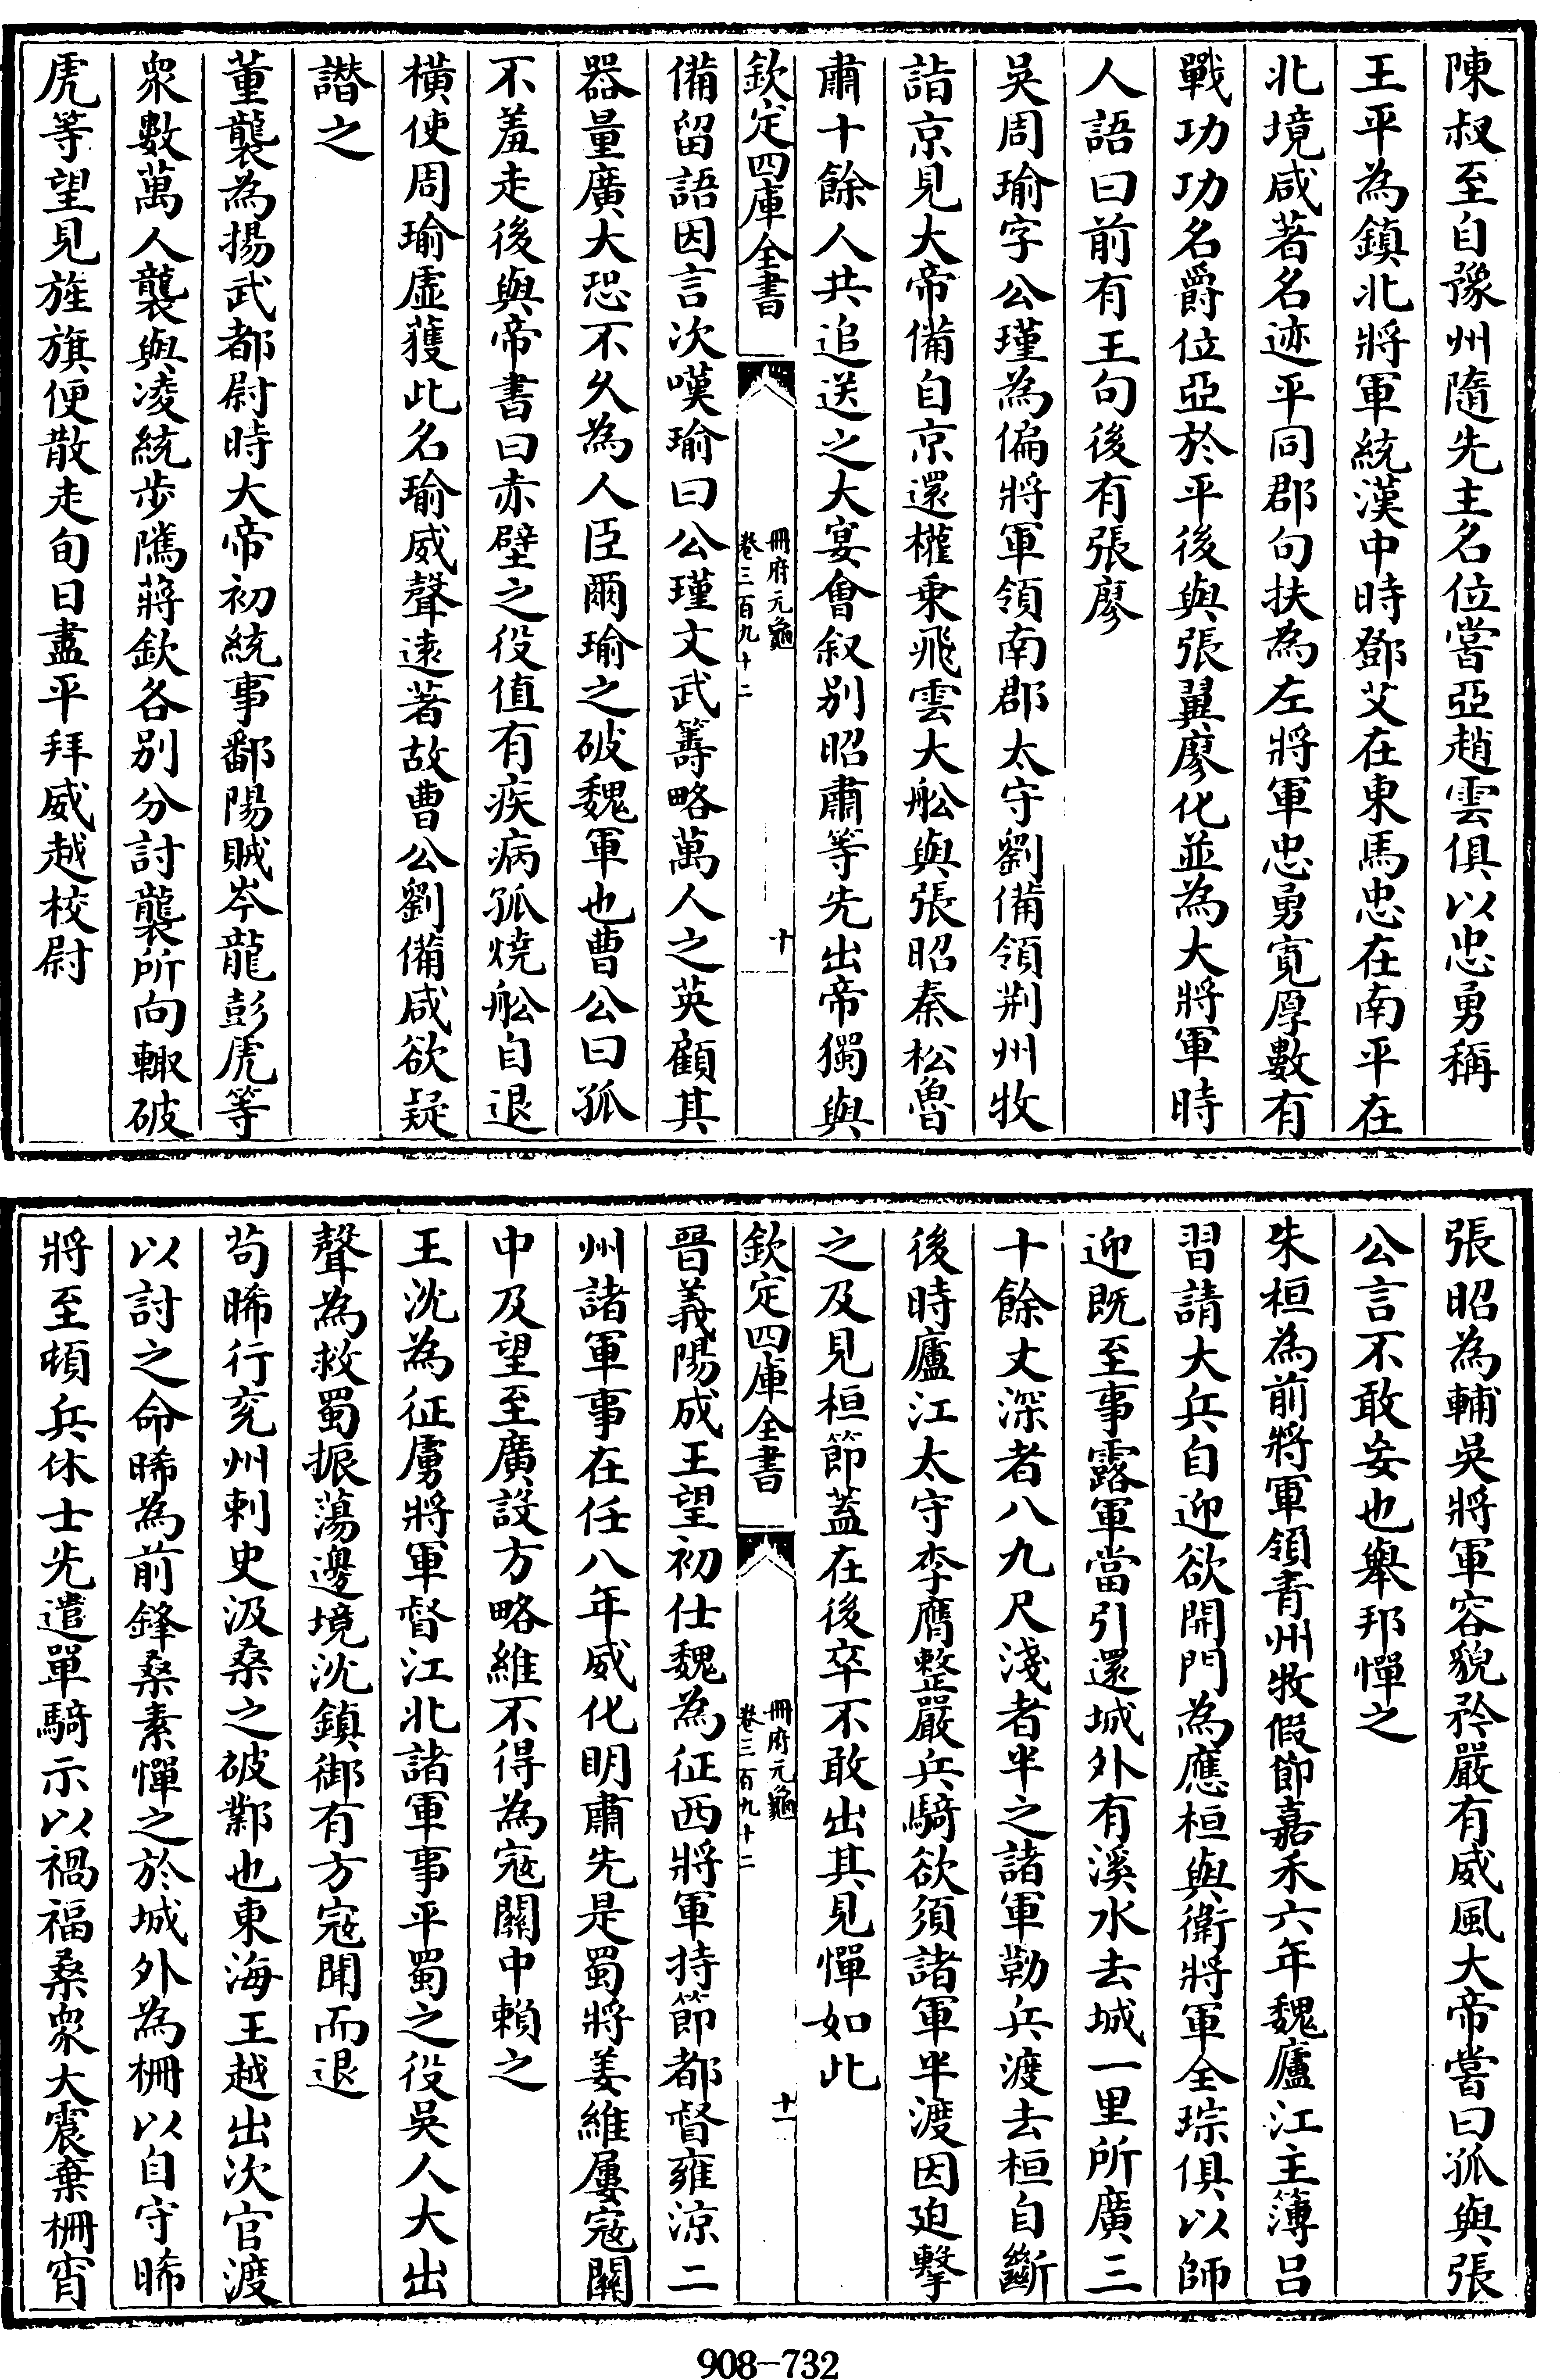 陳叔至自豫州隨先主名位嘗亞趙雲俱以忠勇稱
王平為鎮北將軍統漢中時鄧艾在東馬忠在南平在
北境咸著名迹平同郡句扶為左將軍忠勇寛厚數有
戰功功名爵位亞於平後與張翼廖化並為大將軍時
人語曰前有王句後有張廖
吳周瑜字公瑾為偏將軍領南郡太守劉備領荆州牧
詣京見大帝備自京還權乗飛雲大舩與張昭秦松魯
肅十餘人共追送之大宴會叙别昭肅等先出帝獨與
欽定四庫全書
冊府元龜
卷三百九十二
十
備留語因言次嘆瑜曰公瑾文武籌略萬人之英顧其
器量廣大恐不久為人臣爾瑜之破魏軍也曹公曰孤
不羞走後與帝書曰赤壁之役值有疾病孤燒舩自退
橫使周瑜虛獲此名瑜威聲遠著故曹公劉備咸欲疑
譖之
董襲為揚武都尉時大帝初統事鄱陽賊岑龍彭虎等
衆數萬人襲與凌統步隲蔣欽各别分討襲所向輙破
虎等望見旌旗便散走旬日盡平拜威越校尉
張昭為輔吳將軍容貌矜嚴有威風大帝嘗曰孤與張
公言不敢妄也舉邦憚之
朱桓為前將軍領青州牧假節嘉禾六年魏廬江主簿吕
習請大兵自迎欲開門為應桓與衛將軍全琮俱以師
迎既至事露軍當引還城外有溪水去城一里所廣三
十餘丈深者八九尺淺者半之諸軍勒兵渡去桓自斷
後時廬江太守李膺整嚴兵騎欲須諸軍半渡因迫擊
之及見桓節蓋在後卒不敢出其見憚如此
欽定四庫全書
冊府元龜
卷三百九十二
十一
晉義陽成王望初仕魏為征西將軍持節都督雍涼二
州諸軍事在任八年威化明肅先是蜀將姜維屢宼關
中及望至廣設方略維不得為宼關中賴之
王沈為征虜將軍督江北諸軍事平蜀之役吳人大出
聲為救蜀振蕩邊境沈鎮御有方宼聞而退
苟晞行兖州刺史汲桑之破鄴也東海王越出次官渡
以討之命晞為前鋒桑素憚之於城外為柵以自守晞
將至頓兵休士先遣單騎示以禍福桑衆大震棄柵宵
908-732